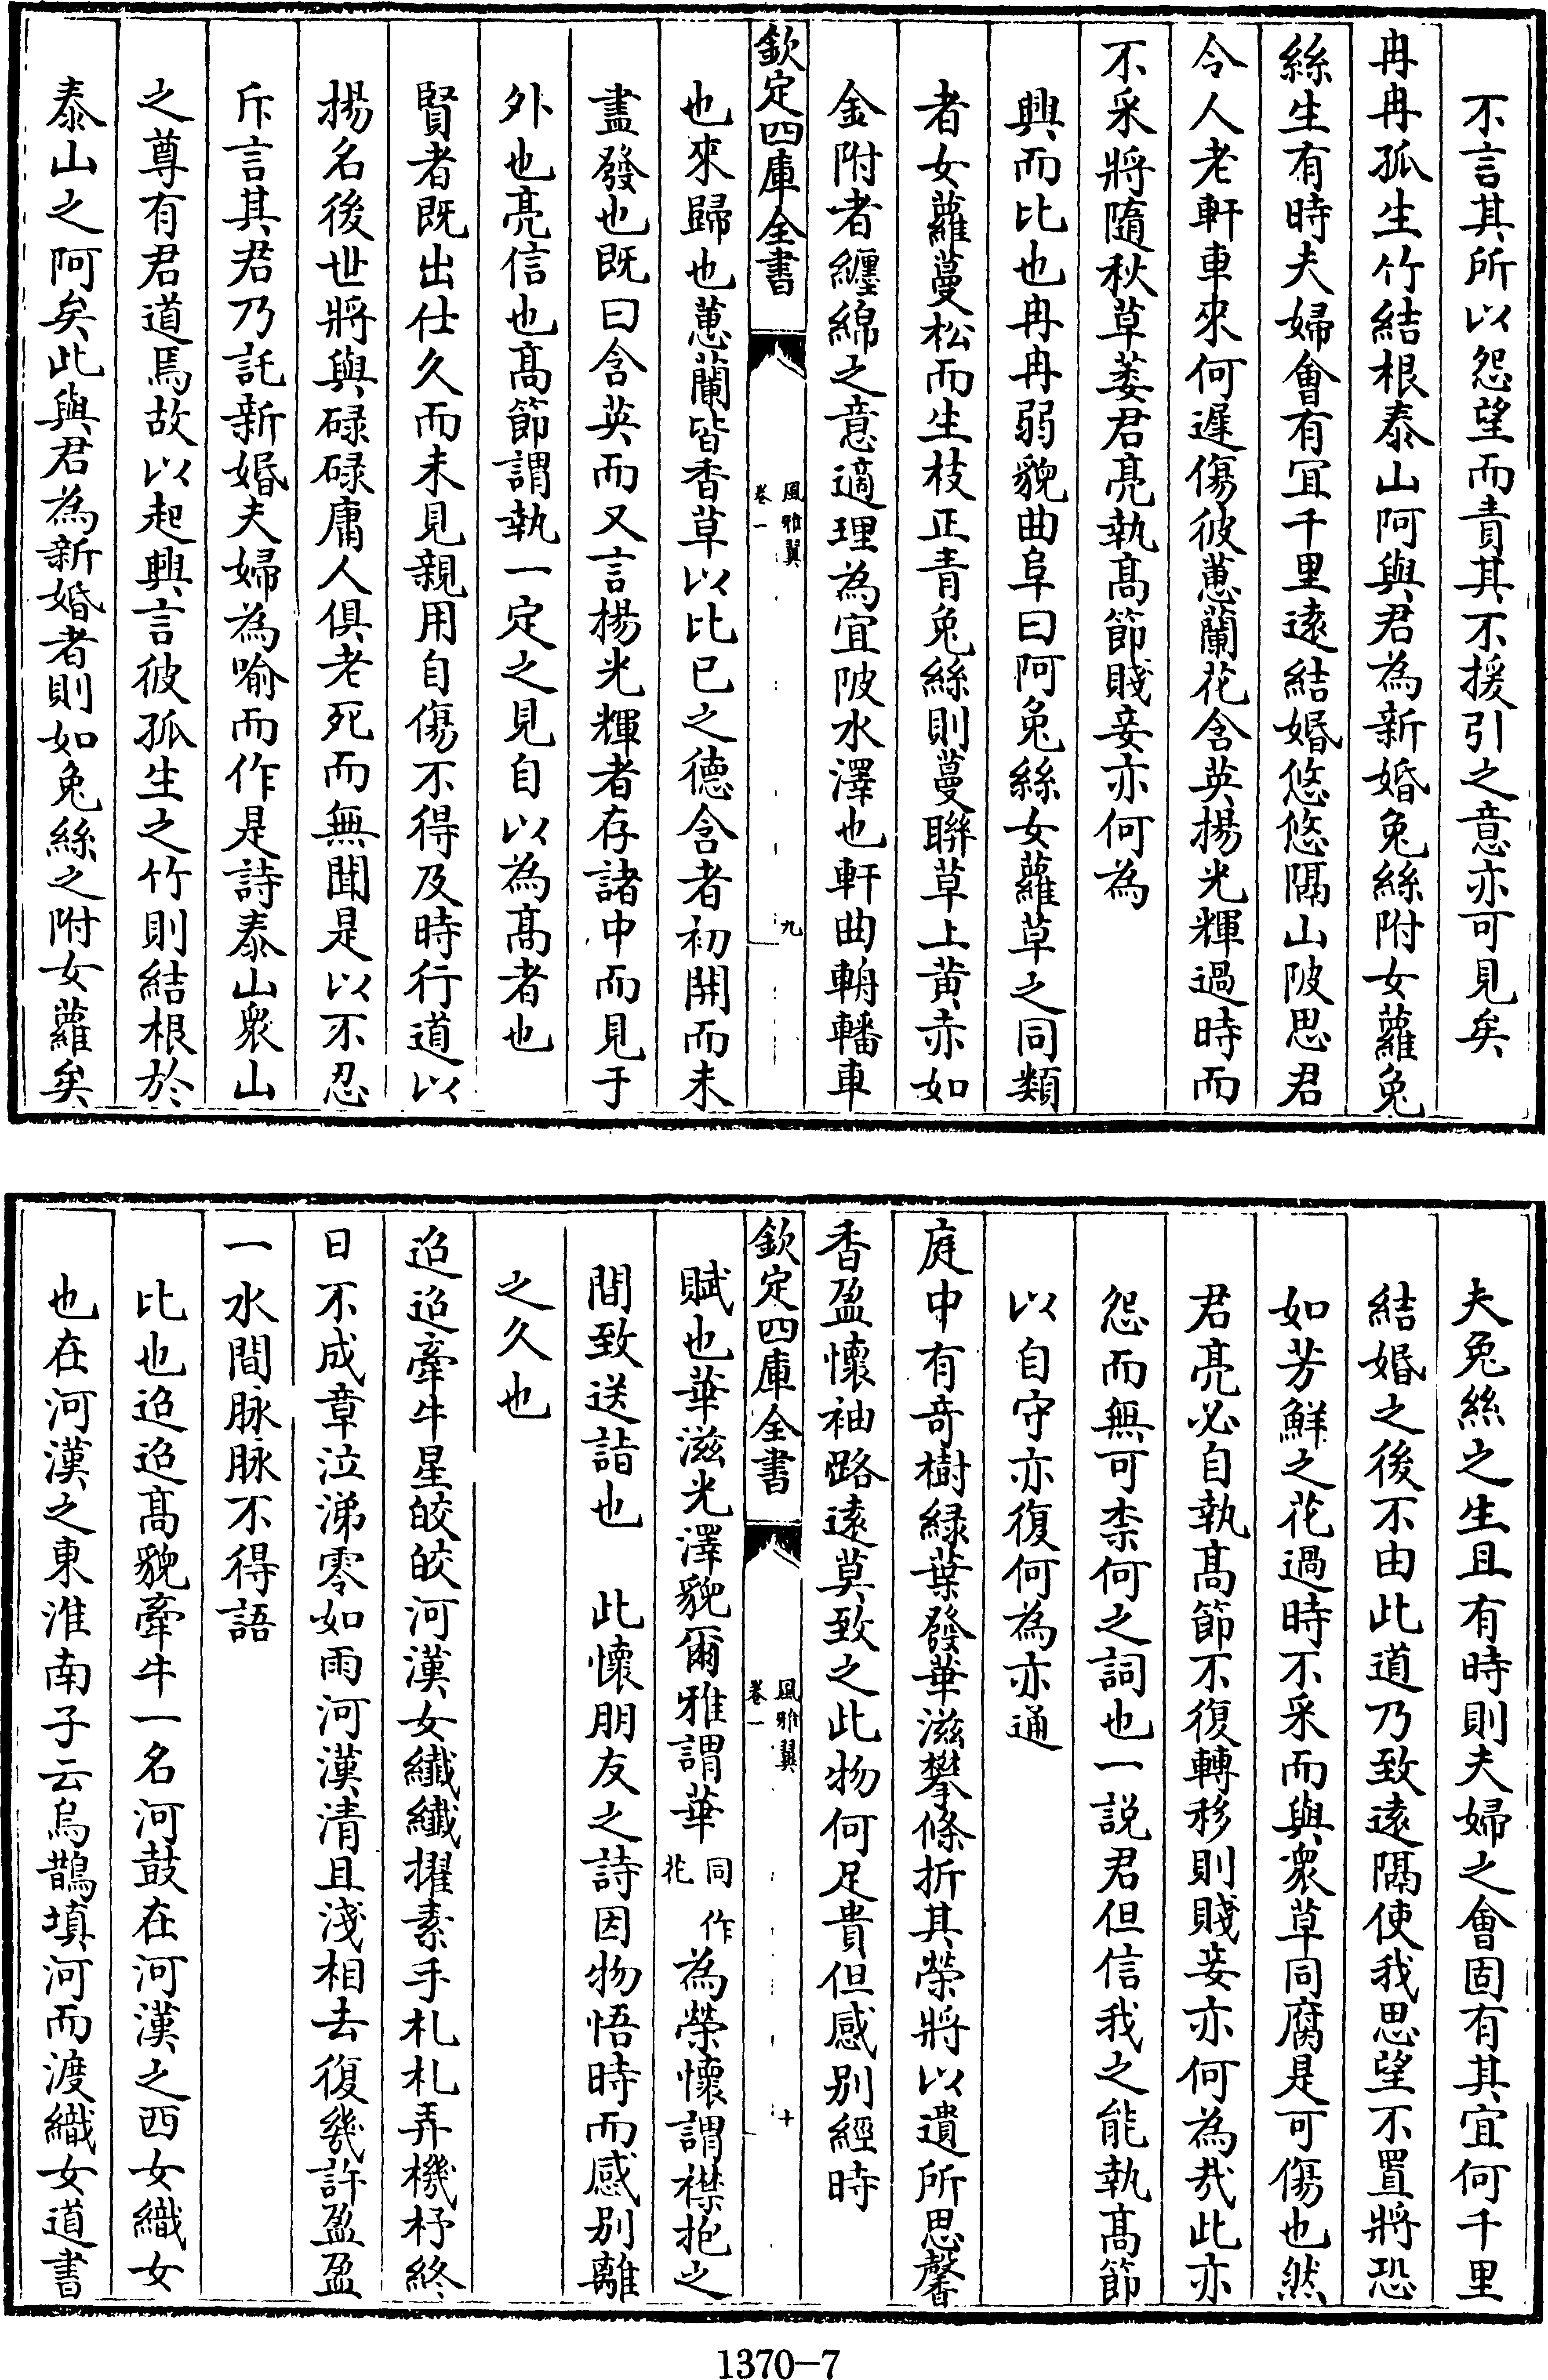 不言其所以怨望而責其不援引之意亦可見矣
冉冉孤生竹結根泰山阿與君為新婚兔絲附女蘿兔
絲生有時夫婦會有宜千里遠結婚悠悠隔山陂思君
令人老軒車來何遲傷彼蕙蘭花含英揚光輝過時而
不采將隨秋草萎君亮執高節賤妾亦何為
興而比也冉冉弱貌曲阜曰阿兔絲女蘿草之同類
者女蘿蔓松而生枝正青兔絲則蔓聨草上黄赤如
金附者纏綿之意適理為宜陂水澤也軒曲輈轓車
欽定四庫全書
風雅翼
卷一
九
也來歸也蕙蘭皆香草以比已之德含者初開而未
盡發也既曰含英而又言揚光輝者存諸中而見于
外也亮信也高節謂執一定之見自以為高者也
賢者既出仕久而未見親用自傷不得及時行道以
揚名後世將與碌碌庸人俱老死而無聞是以不忍
斥言其君乃託新婚夫婦為喻而作是詩泰山衆山
之尊有君道焉故以起興言彼孤生之竹則結根於
泰山之阿矣此與君為新婚者則如兔絲之附女蘿矣
夫兔絲之生且有時則夫婦之會固有其宜何千里
結婚之後不由此道乃致遠隔使我思望不置將恐
如芳鮮之花過時不采而與衆草同腐是可傷也然
君亮必自執高節不復轉移則賤妾亦何為哉此亦
怨而無可柰何之詞也一説君但信我之能執高節
以自守亦復何為亦通
庭中有竒樹緑葉發華滋攀條折其榮將以遺所思馨
香盈懷袖路遠莫致之此物何足貴但感别經時
欽定四庫全書
風雅翼
卷一
十
賦也華滋光澤貌爾雅謂華同花作為榮懷謂襟抱之
間致送詣也 此懷朋友之詩因物悟時而感别離
之久也
迢迢牽牛星皎皎河漢女纖纖擢素手札札弄機杼終
日不成章泣涕零如雨河漢清且淺相去復幾許盈盈
一水間脉脉不得語
比也迢迢高貌牽牛一名河鼓在河漢之西女織女
也在河漢之東淮南子云烏鵲填河而渡織女道書
1370-7